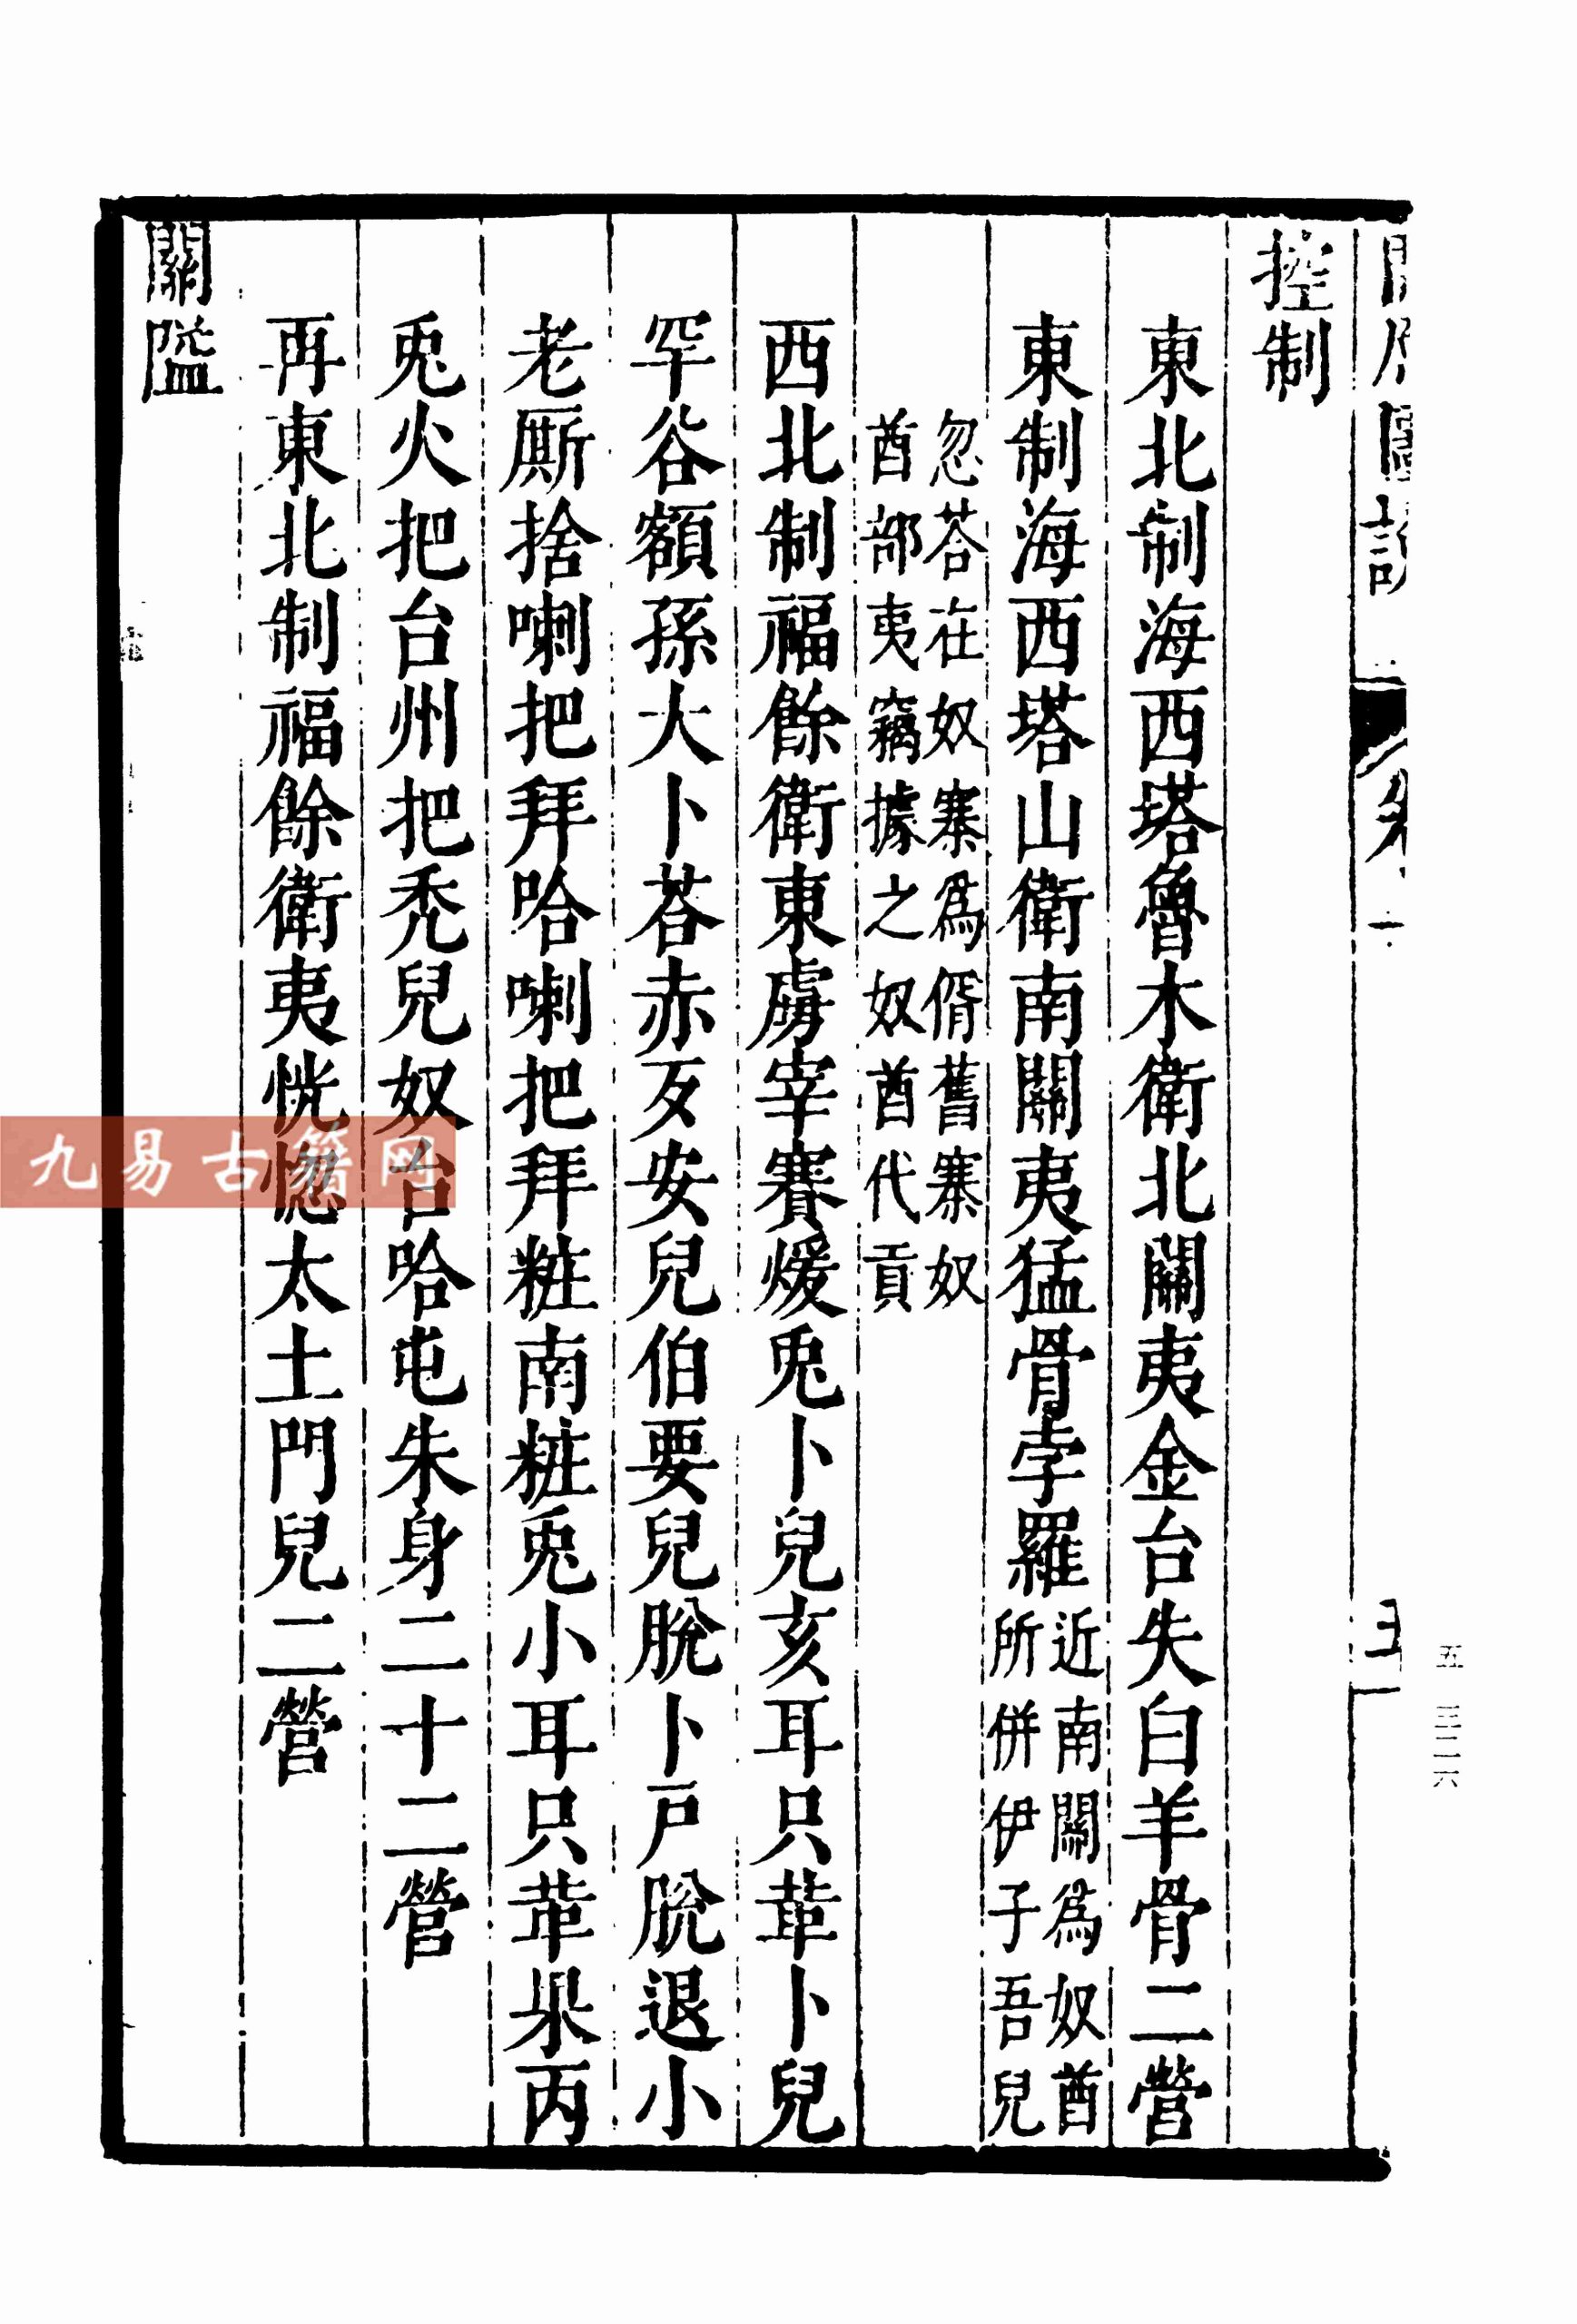 控制
東北制海西塔魯木衛北關夷金台失白羊骨二營
東制海西塔山衛南關夷猛骨孛羅近南關為奴酋所併伊子吾兒
忽荅在奴寨爲偦舊寨奴酋部夷竊據之奴酋代貢
西北制福餘衛東虜宰賽煖兎卜兒亥耳只革卜兒
罕谷額孫大卜荅赤歹安兒伯要兒脫卜戶脫退小
老厮捨喇把拜哈喇把拜粧南粧兎小耳只革杲丙
兎火把台州把禿兒奴台哈屯朱身二十二營
再東北制福餘衛夷恍惚太土門兒二營
關隘
五 三二六
九易古籍网